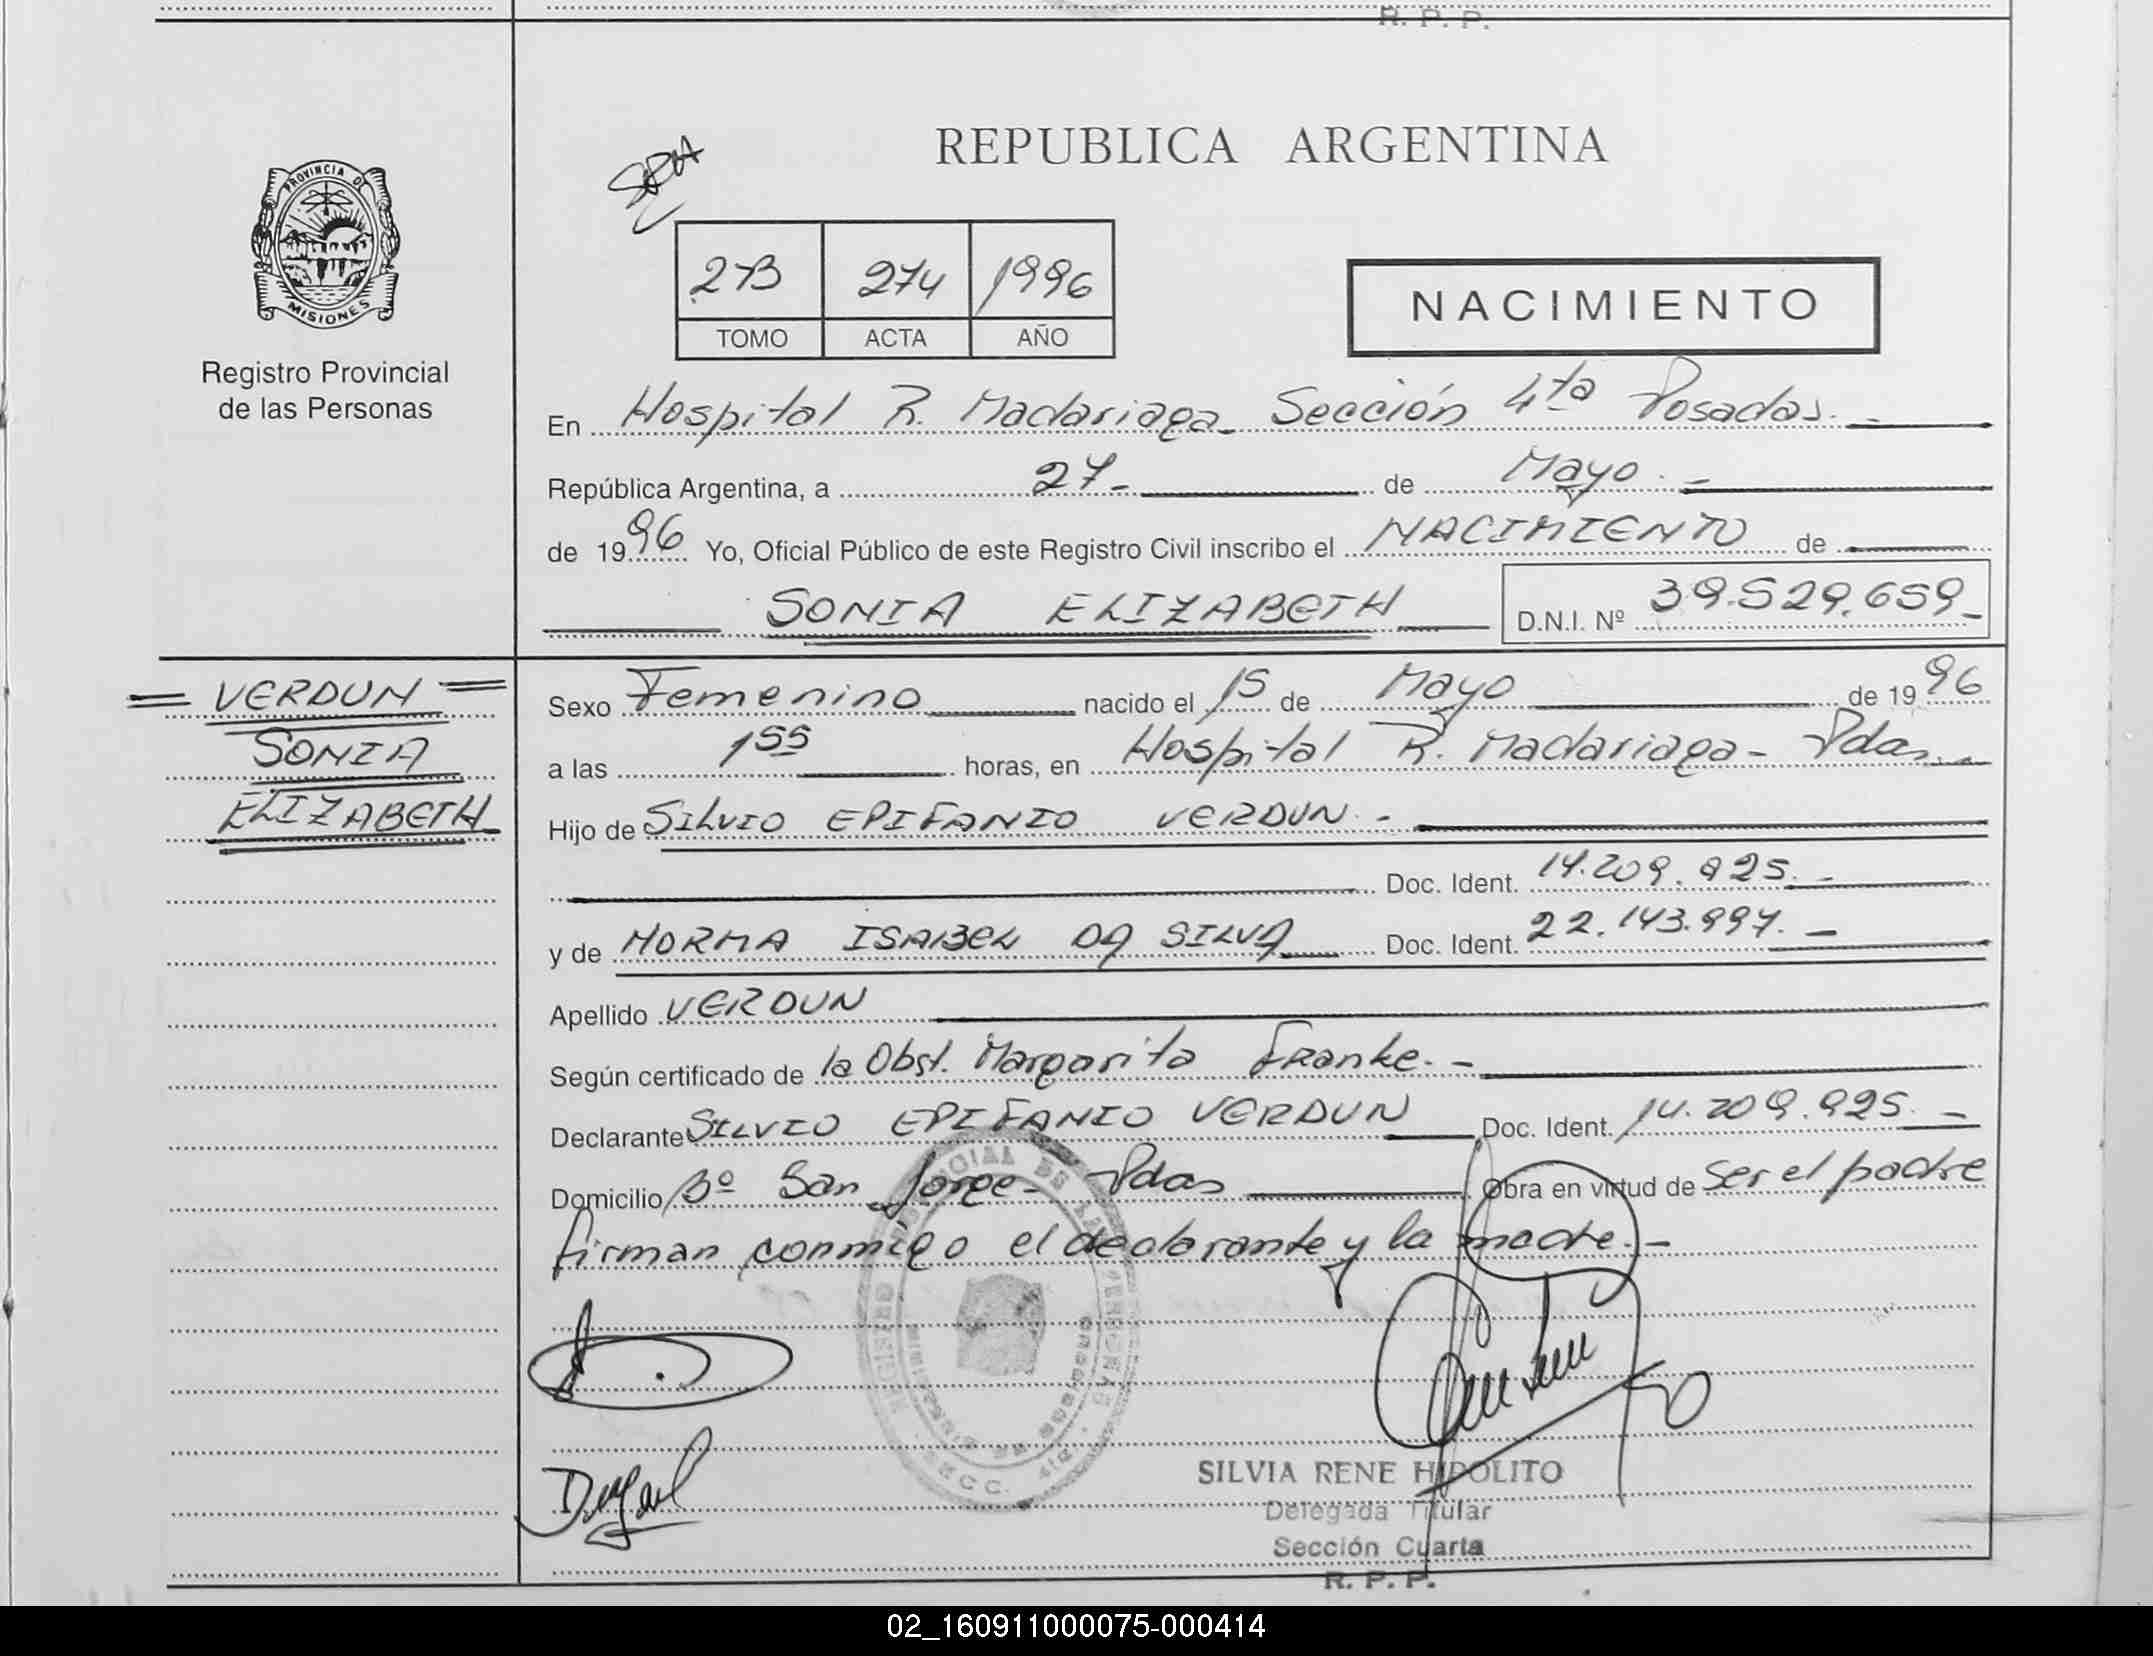 R. P. P.
REPUBLICA ARGENTINA
PROVINCIA DE
MISIONES
Registro Provincial
de las Personas
2-B 274 1996
TOMO ACTA AÑO
NACIMIENTO
En Hospital R. Madariaga - Sección 4ta Posadas. -
República Argentina, a 27- de Mayo. -
de 1996 Yo, Oficial Público de este Registro Civil inscribo el NACIMIENTO de
SONIA ELIZABETH D.N.I. Nº 39.529.659-
VERDUN
SONIA
ELIZABETH
Sexo Femenino nacido el 15 de Mayo de 1996
a las 1 55 horas, en Hospital R. Madariaga - Pdas. -
Hijo de SILVIO EPIFANIO VERDUN. -
Doc. Ident. 14.209.925. -
y de NORMA ISABEL DA SILVA Doc. Ident. 22.143.997. -
Apellido VERDUN
Según certificado de la Obst. Margarita Franke. -
Declarante SILVIO EPIFANIO VERDUN Doc. Ident. 14.209.925. -
Domicilio Bº San Jorge - Pdas Obra en virtud de Ser el padre
firman conmigo el declarante y la madre. -
SILVIA RENE HIPOLITO
Delegada Titular
Sección Cuarta
R. P. P.
02_160911000075-000414